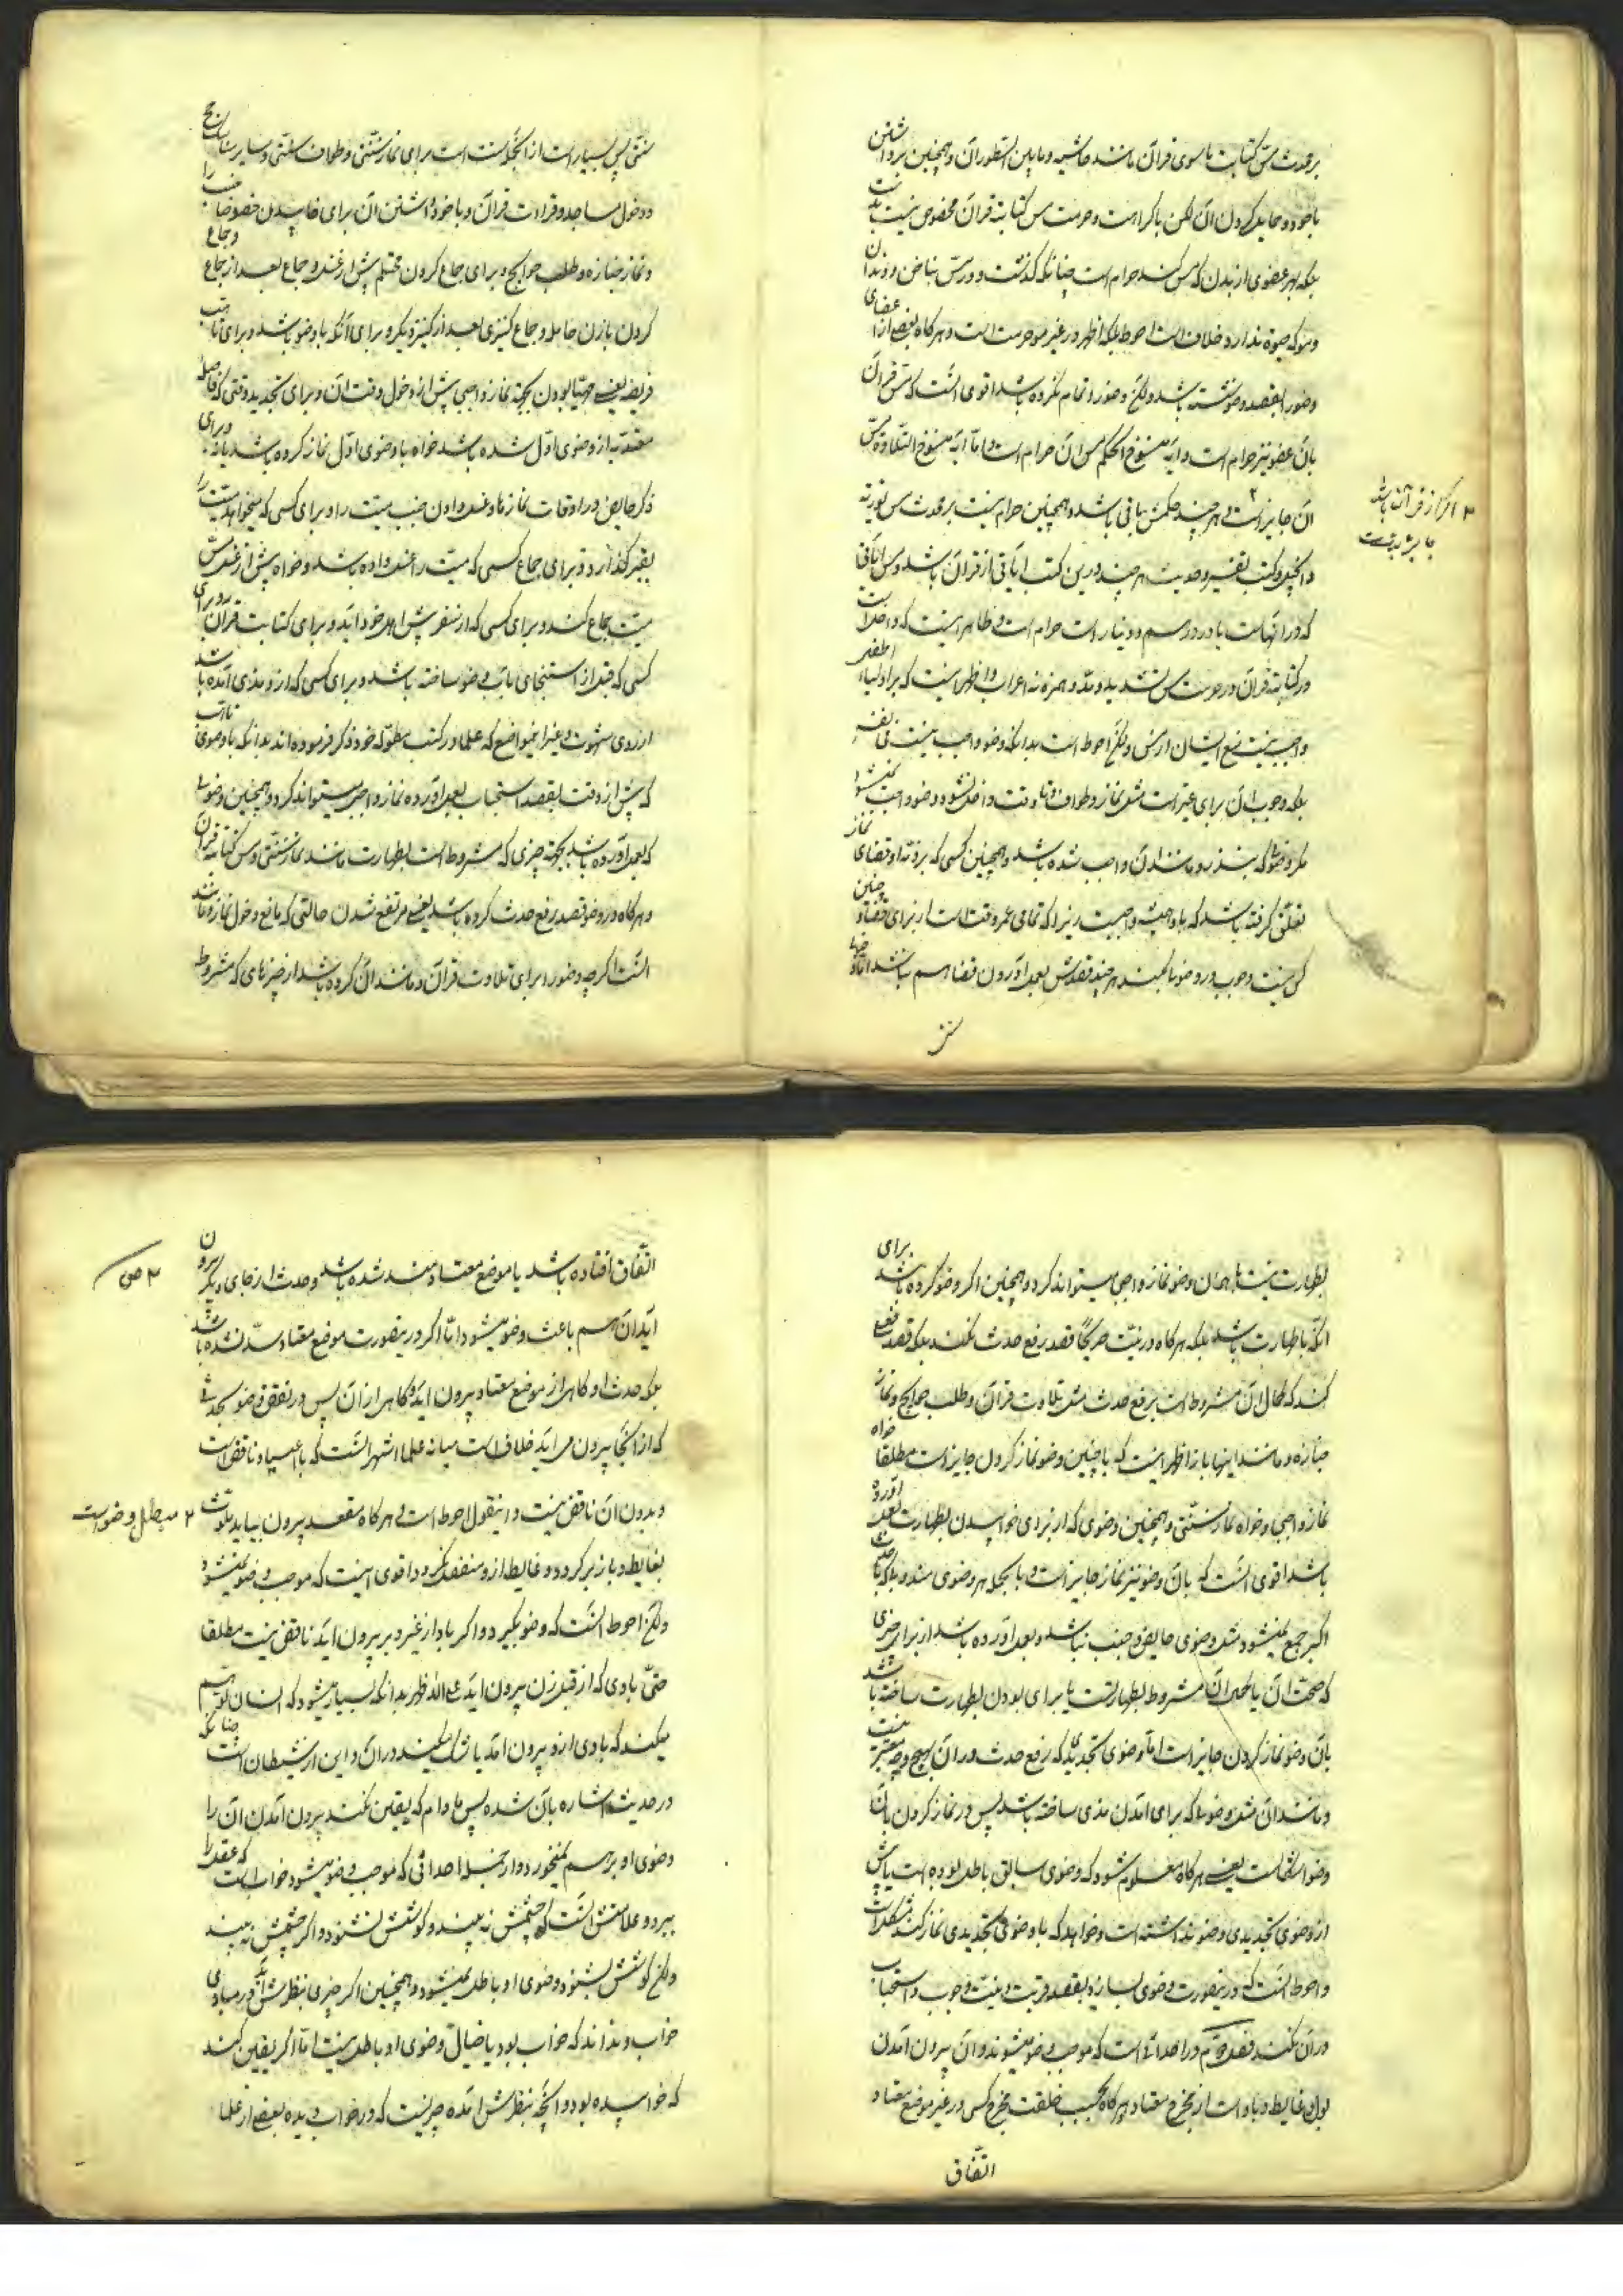 بر محدث مس کتابت ماسوی قران مانند حاشیه و مابین السطور ان و همچنین برداشتن
با خود و حمایل کردن ان لکن با کراهت و حرمت مس کتابة قران مخصوص نیست بدست
بلکه بهر عضوی از بدن که مس کند حرام است چنانکه گذشت و در مس بناخن و دندان
و مو که حیوة ندارد خلاف است احوط بلکه اظهر در غیر مو حرمت است و هر گاه بعضی از اعضای
وضو را بقصد وضو شسته باشد ولکن وضو را تمام نکرده باشد اقوی انست که مس قران
بان عضو نیز حرام است و ایه منسوخ الحکم مس ان حرام است و اما ایه منسوخ التلاوة مس
ان جایز است هر چند حکمش باقی باشد و همچنین حرام نیست بر محدث مس توریة
و انجیل و کتب تفسیر و حدیث هر چند درین کتب ایاتی از قران باشد و مس ایاتی
که در انهاست یا در درهم و دینار است حرام است و ظاهر اینست که داخل است
در کتابة قران در حرمت مس تشدید و مد و همزه نه اعراب و اظهر اینست که بر اولیاء اطفال
واجب نیست منع ایشان از مس ولکن احوط است بدانکه وضو واجب نیست فی نفسه
بلکه وجوب ان برای غیر است مثل نماز و طواف و تا وقت داخل نشود وضو واجب نمیشود
مگر وضوئی که بنذر و مانند ان واجب شده باشد و همچنین کسی که بر ذمه او قضای نماز
تعلق گرفته باشد که با وحیثیت واجبست زیرا که تمامی عمر وقت است از برای قضا و چنین
کسی نیت وجوب در وضوها میکند هر چند قصدش بعمل اوردن قضا هم نباشد اما وضوهای
سنتی
۲ اگر از قران باشد
جایز نیست
سنتی پس بسیار است از انجمله سنت است برای نماز سنتی و طواف سنتی و سایر مناسک حج
و دخول مساجد و قرائت قران و با خود داشتن ان برای خوابیدن خصوصا جنب را
و نماز جنازه و طلب حوایج و برای جماع کردن محتلم پیش از غسل و جماع بعد از جماع و جماع
کردن با زن حامله و جماع کنیزی بعد از کنیز دیگر و برای انکه با وضو باشد و برای تاهب
فریضه یعنی مهیا بودن بجهة نماز واجبی پیش از دخول وقت ان و برای تجدید وقتی که فاصله
معتدبه از وضوی اول شده باشد خواه با وضوی اول نماز کرده باشد یا نه و برای
ذکر حایض در اوقات نمازها و غسل دادن جنب میت را و برای کسی که میخواهد میت را
بقبر گذارد و برای جماع کسی که میت را غسل داده باشد و خواه پیش از غسل مس
میت جماع کند و برای کسی که از سفر پیش اهل خود اید و برای کتابت قران و برای
کسی که قبل از استنجای باب وضو ساخته باشد و برای کسی که از و مذی امده باشد
از روی شهوت و غیر اینمواضع که علما در کتب مطوله خود ذکر فرموده اند بدانکه با وضوی
که پیش از وقت بقصد استحباب بعمل اورده نماز واجبی میتواند کرد و همچنین وضوئی
که بعمل اورده باشد بجهة چیزی که مشروط است بطهارت مانند نماز سنتی و مس کتابة قران
و هر گاه در وضو قصد رفع حدث کرده باشد یعنی مرتفع شدن حالتی که مانع دخول نماز و مانند
انست اگر چه وضو را برای تلاوت قران و مانند ان کرده باشد از چیزهای که مشروط
بطهارت نیست با همان وضو نماز واجبی میتواند کرد و همچنین اگر وضو کرده باشد برای
انکه با طهارت باشد بلکه هر گاه در نیت صریحا قصد رفع حدث نکند بلکه قصد فعلی
کند که کمال ان مشروط است برفع حدث مثل تلاوت قران و طلب حوایج و نماز
جنازه و مانند اینها باز اظهر اینست که با چنین وضو نماز کردن جایز است مطلقا خواه
نماز واجبی و خواه نماز سنتی و همچنین وضوی که از برای خوابیدن بطهارت بعمل اورده
باشد اقوی انست که بان وضو نیز نماز جایز است و بالجمله هر وضوی مندوبی که با حدث
اکبر جمع نمیشود مثل وضوی حایض و جنب نباشد و بعمل اورده باشد از برای چیزی
که صحت ان یا کمال ان مشروط بطهارتست یا برای بودن بطهارت ساخته باشد
بان وضو نماز کردن جایز است اما وضوی تجدیدی که رفع حدث در ان بهیچ وجه معتبر نیست
و مانند ان مثل وضوئی که برای امدن مذی ساخته باشد پس در نماز کردن بان
وضو اشکالست یعنی هر گاه معلوم شود که وضوی سابق باطل بوده است یا پیش
از وضوی تجدیدی وضو نداشته است و خواهد که با وضوی تجدیدی نماز کند مشکل است
و احوط انست که در ینصورت وضوی بسازد بقصد قربت و نیت وجوب و استحباب
در ان نکند فصل دویم در احداثی است که موجب وضو میشوند و ان بیرون امدن
بول و غایط و باد است از مخرج معتاد و هر گاه بحسب خلقت مخرج کسی در غیر موضع معتاد
اتفاق
اتفاق افتاده باشد یا موضع معتاد مسدود شده باشد و حدث از جای دیگر بیرون
اید ان هم باعث وضو میشود اما اگر در ینصورت موضع معتاد سد نشده باشد
بلکه حدث او گاهی از موضع معتاد بیرون اید و گاهی از ان پس در نقض وضو بحدثی
که از انجا بیرون می اید خلاف است میانه علما اشهر انست که با اعتیاد ناقض است
و بدون ان ناقض نیست و اینقول احوط است و هر گاه مقعد بیرون بیاید ملوث
بغایط و باز برگردد و غایط از و منفصل نگردد اقوی اینست که موجب وضو نمیشود
ولکن احوط انست که وضو بگیرد و اگر باد از غیر دبر بیرون اید ناقض نیست مطلقا
حتی بادی که از قبل زن بیرون اید علی الاظهر بدانکه بسیار میشود که انسان توهم
میکند که بادی از و بیرون امد یا شک میکند در ان و این از شیطان است چنانکه
در حدیث اشاره بان شده پس مادام که یقین نکند بیرون امدن ان را
وضوی او برهم نمیخورد و از جمله احداثی که موجب وضو میشود خواب است که عقل را
ببرد و علامتش انست که چشمش نه بیند و گوشش نشنود و اگر چشمش نه بیند
ولکن گوشش بشنود وضوی او باطل نمیشود و همچنین اگر چیزی بنظرش اید در مبادی
خواب و نداند که خواب بود یا خیال وضوی او باطل نیست اما اگر یقین کند
که خوابیده بود و انچه بنظرش امده چیزیست که در خواب دیده بعضی از علما
۲ ص
۲ مبطل وضو است